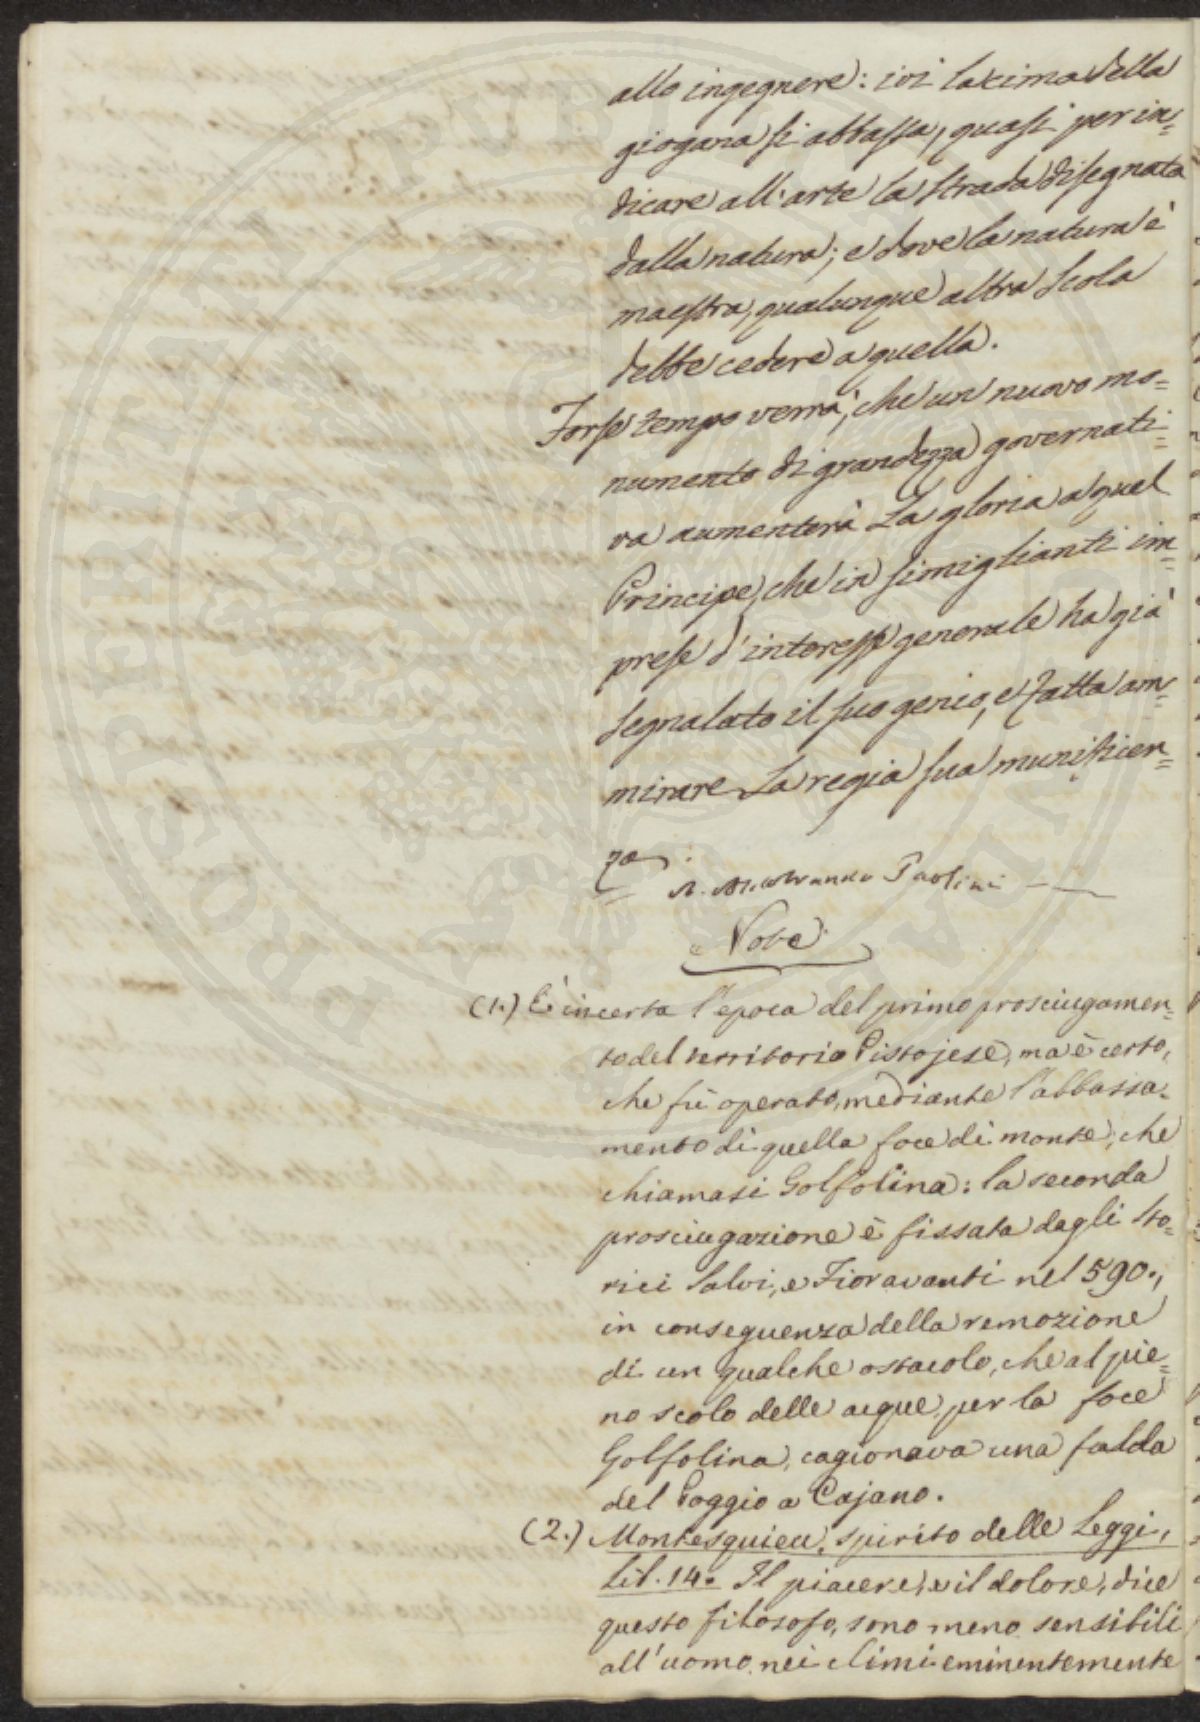 allo ingegnere: ivi la cima della
giogana si abbassa, quasi per in=
dicare all'arte la strada disegnata
dalla natura; e dove la natura è
maestra, qualunque altra scola
debbe cedere a quella.
Forse tempo verrà, che un nuovo mo=
numento di grandezza governati=
va aumenterà La gloria a quel
Principe, che in simiglianti im=
prese d'interesse generale ha già
segnalato il suo genio, e fatta am=
mirare La regia sua munificen=
za
Paolini
Note
(1.) È incerta l'epoca del primo prosciugamen=
to del territorio Pistojese, ma è certo,
che fù operato, mediante l'abbassa=
mento di quella foce di monte, che
chiamasi Golfolina: la seconda
prosciugazione è fissata dagli Sto=
rici Salvi, e Fioravanti nel 590.,
in conseguenza della remozione
di un qualche ostacolo, che al pie=
no scolo delle acque, per la foce
Golfolina, cagionava una falda
del Poggio a Cajano.
(2.) Montesquieu, spirito delle Leggi,
Lib. 14. Il piacere, e il dolore, dice
questo filosofo, sono meno sensibili
all'uomo nei climi eminentemente
PROSPERITATI PVBLICAE